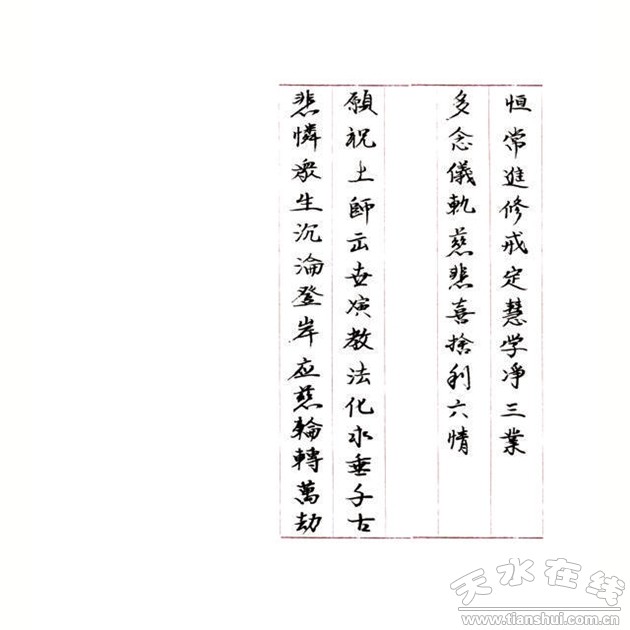 恒常進修戒定慧学凈三業
多念儀軌慈悲喜捨利六情
願祝上師出世演教法化永垂千古
悲憐眾生沉淪登岸应慈輪轉萬劫
天水在线
www.tianshui.com.cn